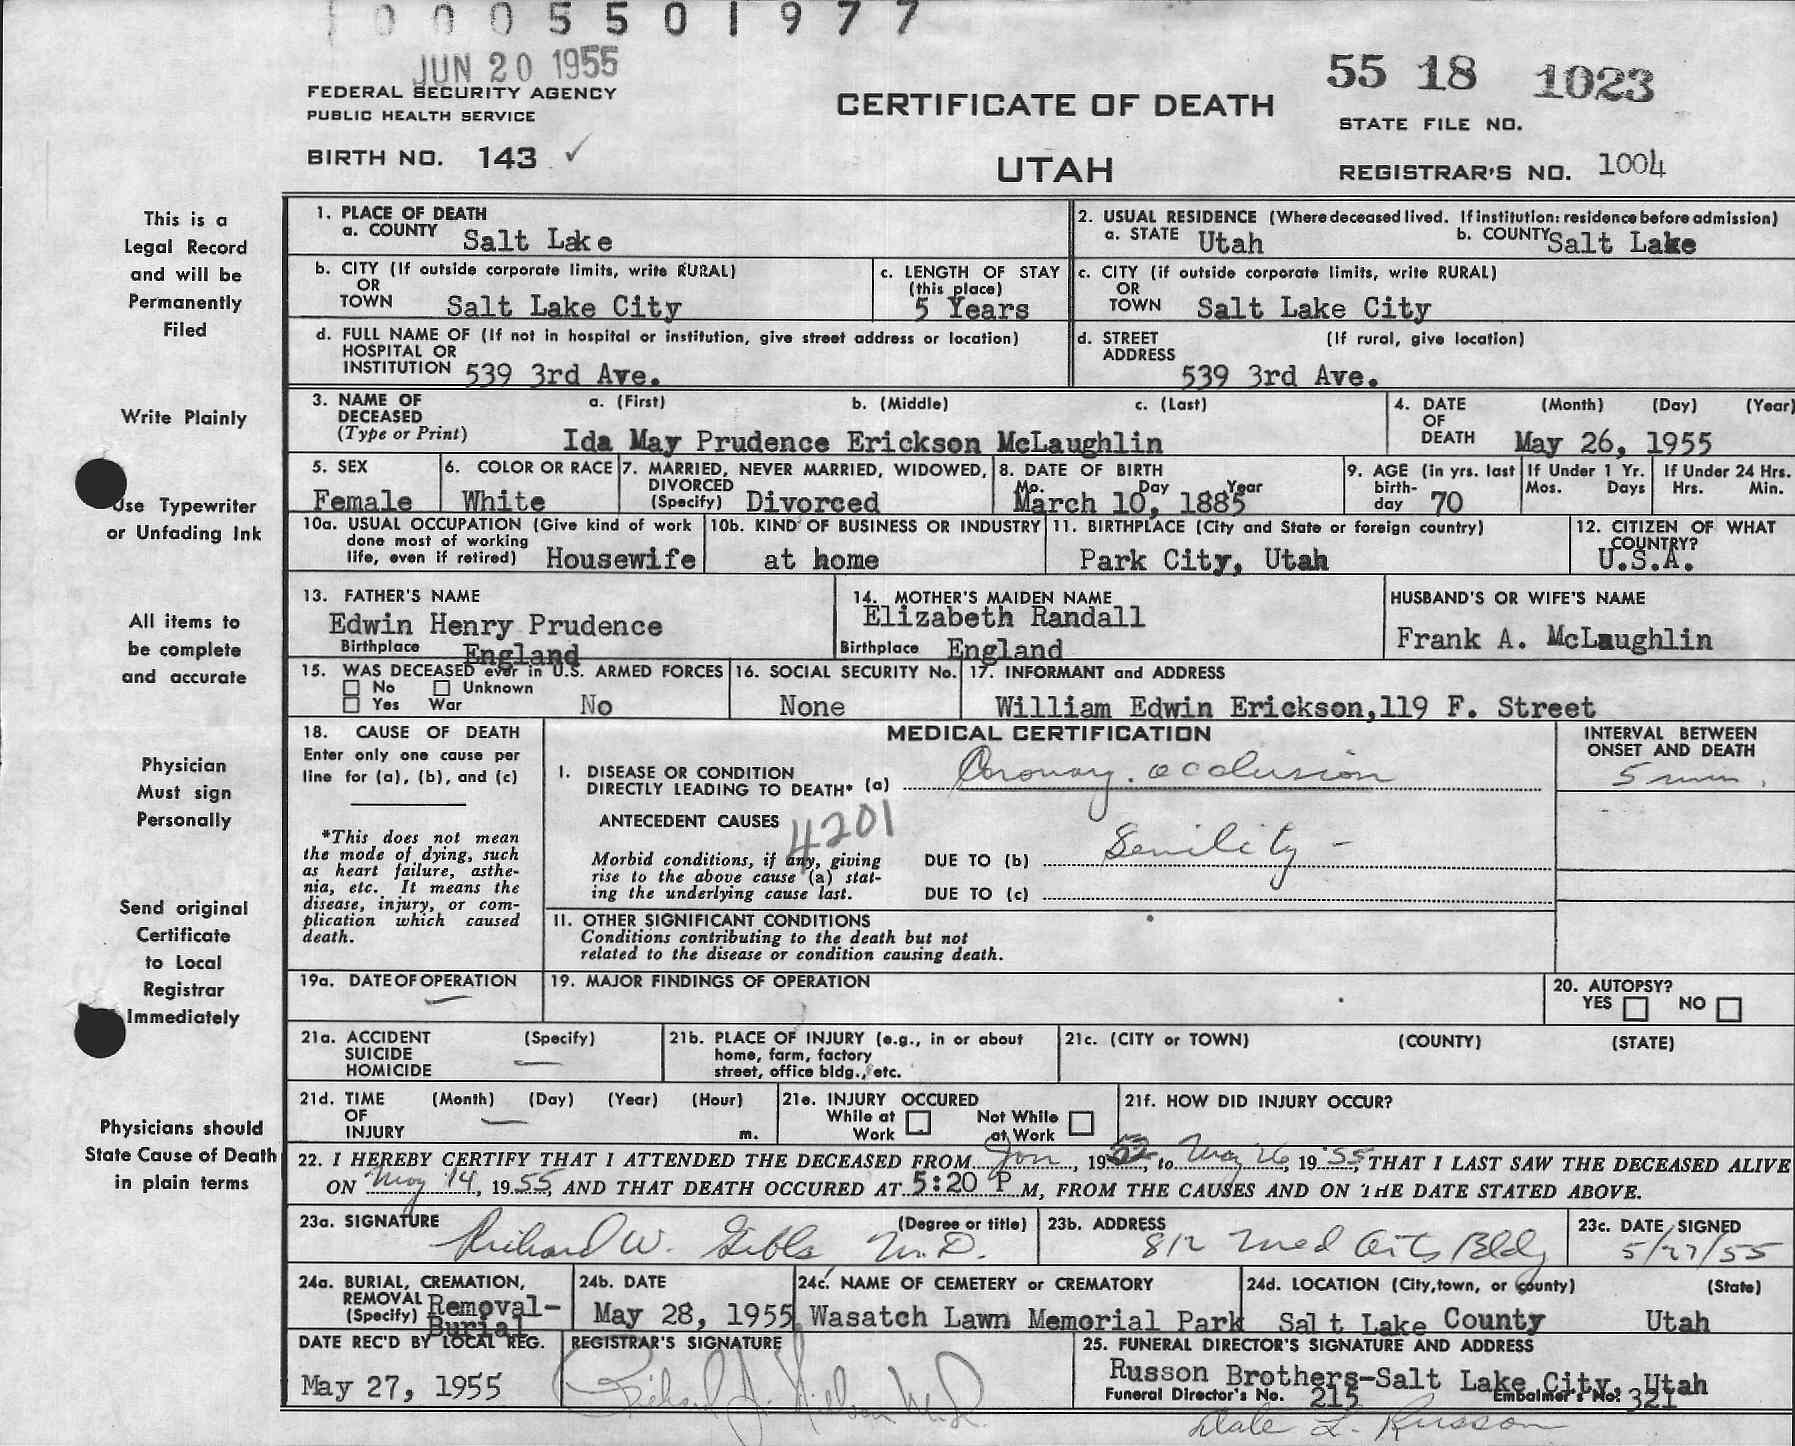 0005501977
JUN 20 1955
55 18 1023
FEDERAL SECURITY AGENCY
PUBLIC HEALTH SERVICE
CERTIFICATE OF DEATH
STATE FILE NO.
BIRTH NO. 143 ✓
UTAH
REGISTRAR'S NO. 1004
This is a
Legal Record
and will be
Permanently
Filed
Write Plainly
Use Typewriter
or Unfading Ink
All items to
be complete
and accurate
Physician
Must sign
Personally
Send original
Certificate
to Local
Registrar
Immediately
Physicians should
State Cause of Death
in plain terms
1. PLACE OF DEATH
a. COUNTY Salt Lake
2. USUAL RESIDENCE (Where deceased lived. If institution: residence before admission)
a. STATE Utah b. COUNTY Salt Lake
b. CITY (If outside corporate limits, write RURAL)
OR
TOWN Salt Lake City
c. LENGTH OF STAY
(this place)
5 Years
c. CITY (if outside corporate limits, write RURAL)
OR
TOWN Salt Lake City
d. FULL NAME OF (If not in hospital or institution, give street address or location)
HOSPITAL OR
INSTITUTION 539 3rd Ave.
d. STREET (If rural, give location)
ADDRESS
539 3rd Ave.
3. NAME OF DECEASED
(Type or Print)
a. (First) b. (Middle) c. (Last)
Ida May Prudence Erickson McLaughlin
4. DATE OF DEATH (Month) (Day) (Year)
May 26, 1955
5. SEX
Female
6. COLOR OR RACE
White
7. MARRIED, NEVER MARRIED, WIDOWED,
DIVORCED
(Specify) Divorced
8. DATE OF BIRTH
Mo. Day Year
March 10, 1885
9. AGE (in yrs. last
birth-
day 70
If Under 1 Yr.
Mos. Days
If Under 24 Hrs.
Hrs. Min.
10a. USUAL OCCUPATION (Give kind of work
done most of working
life, even if retired) Housewife
10b. KIND OF BUSINESS OR INDUSTRY
at home
11. BIRTHPLACE (City and State or foreign country)
Park City, Utah
12. CITIZEN OF WHAT
COUNTRY?
U.S.A.
13. FATHER'S NAME
Edwin Henry Prudence
Birthplace England
14. MOTHER'S MAIDEN NAME
Elizabeth Randall
Birthplace England
HUSBAND'S OR WIFE'S NAME
Frank A. McLaughlin
15. WAS DECEASED ever in U.S. ARMED FORCES
No Unknown
Yes War No
16. SOCIAL SECURITY No.
None
17. INFORMANT and ADDRESS
William Edwin Erickson,119 F. Street
18. CAUSE OF DEATH
Enter only one cause per
line for (a), (b), and (c)
*This does not mean
the mode of dying, such
as heart failure, asthe-
nia, etc. It means the
disease, injury, or com-
plication which caused
death.
MEDICAL CERTIFICATION
INTERVAL BETWEEN
ONSET AND DEATH
I. DISEASE OR CONDITION
DIRECTLY LEADING TO DEATH* (a) Coronary occlusion
5 min.
ANTECEDENT CAUSES
4201
Morbid conditions, if any, giving
rise to the above cause (a) stat-
ing the underlying cause last.
DUE TO (b) Senility -
DUE TO (c)
II. OTHER SIGNIFICANT CONDITIONS
Conditions contributing to the death but not
related to the disease or condition causing death.
19a. DATE OF OPERATION
—
19. MAJOR FINDINGS OF OPERATION
20. AUTOPSY?
YES NO
21a. ACCIDENT (Specify)
SUICIDE —
HOMICIDE
21b. PLACE OF INJURY (e.g., in or about
home, farm, factory
street, office bldg., etc.
21c. (CITY or TOWN) (COUNTY) (STATE)
21d. TIME (Month) (Day) (Year) (Hour)
OF —
INJURY m.
21e. INJURY OCCURED
While at Work Not While at Work
21f. HOW DID INJURY OCCUR?
22. I HEREBY CERTIFY THAT I ATTENDED THE DECEASED FROM Jan, 19 , to May 26, 19 55, THAT I LAST SAW THE DECEASED ALIVE
ON May 14, 1955, AND THAT DEATH OCCURED AT 5:20 P M, FROM THE CAUSES AND ON THE DATE STATED ABOVE.
23a. SIGNATURE (Degree or title)
Richard W. Gibbs M.D.
23b. ADDRESS
812 Med Arts Bldg
23c. DATE SIGNED
5/27/55
24a. BURIAL, CREMATION,
REMOVAL
(Specify) Removal-
Burial
24b. DATE
May 28, 1955
24c. NAME OF CEMETERY or CREMATORY
Wasatch Lawn Memorial Park
24d. LOCATION (City, town, or county) (State)
Salt Lake County Utah
DATE REC'D BY LOCAL REG.
May 27, 1955
REGISTRAR'S SIGNATURE
Richard J. Nielson M.D.
25. FUNERAL DIRECTOR'S SIGNATURE AND ADDRESS
Russon Brothers-Salt Lake City, Utah
Funeral Director's No. 215 Embalmer's No. 321
Dale L. Russon